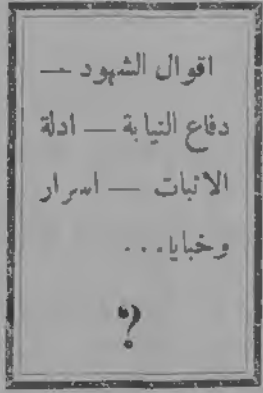 اقوال الشهود —
دفاع النيابة — ادلة
الاثبات — اسرار
وخبايا...
?